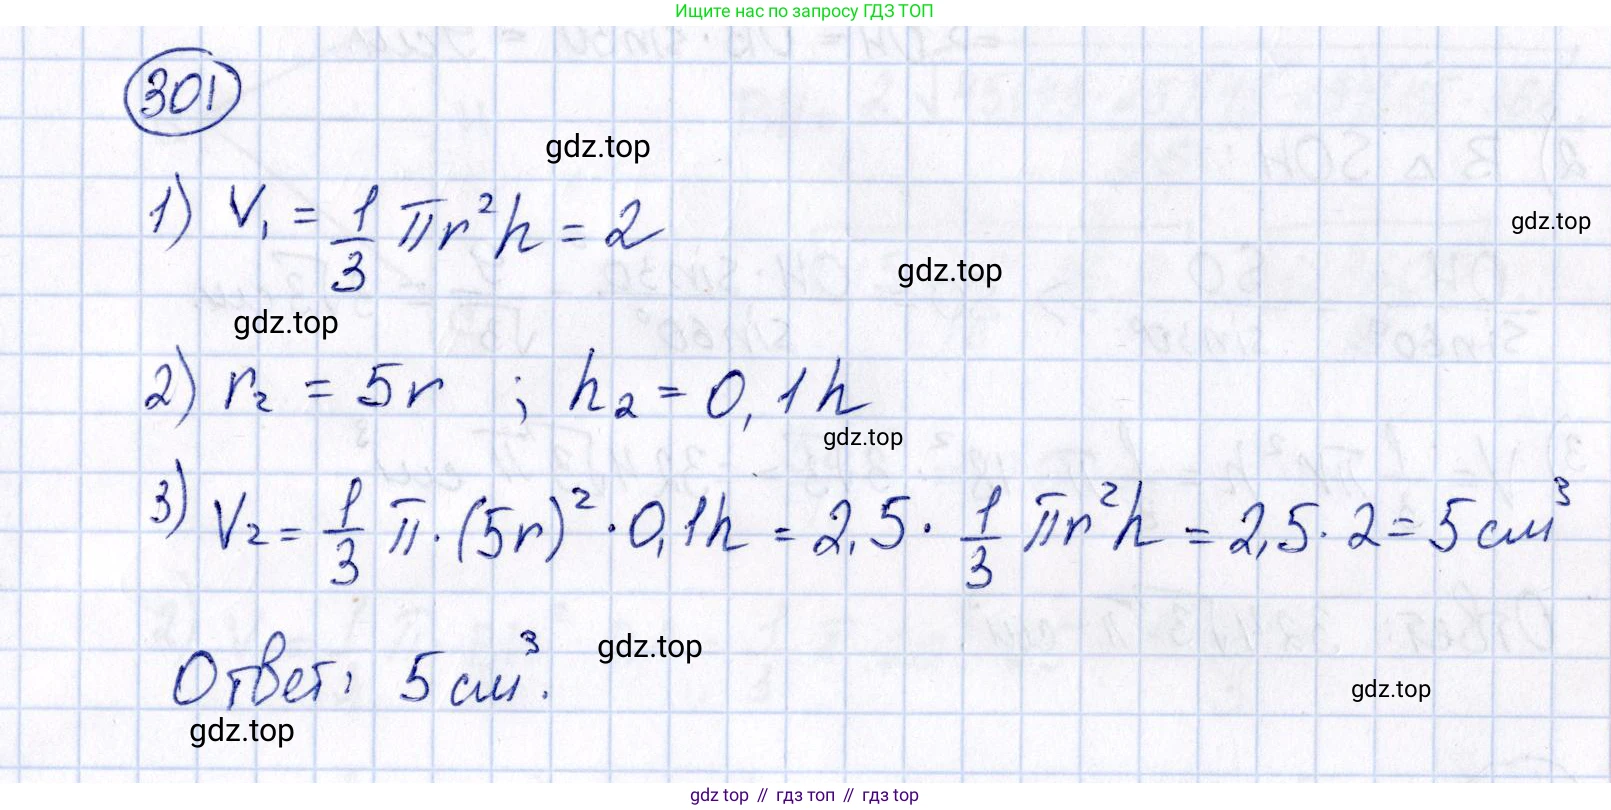 Ищите нас по запросу ГДЗ ТОП
301
gdz.top
1) V₁ = 1/3 πr²h = 2
gdz.top
gdz.top
gdz.top
2) r₂ = 5r ; h₂ = 0,1h
gdz.top
3) V₂ = 1/3 π·(5r)²·0,1h = 2,5· 1/3 πr²h = 2,5·2 = 5 см³
gdz.top
Ответ: 5 см³.
gdz.top
gdz.top
gdz top // гдз топ // gdz top